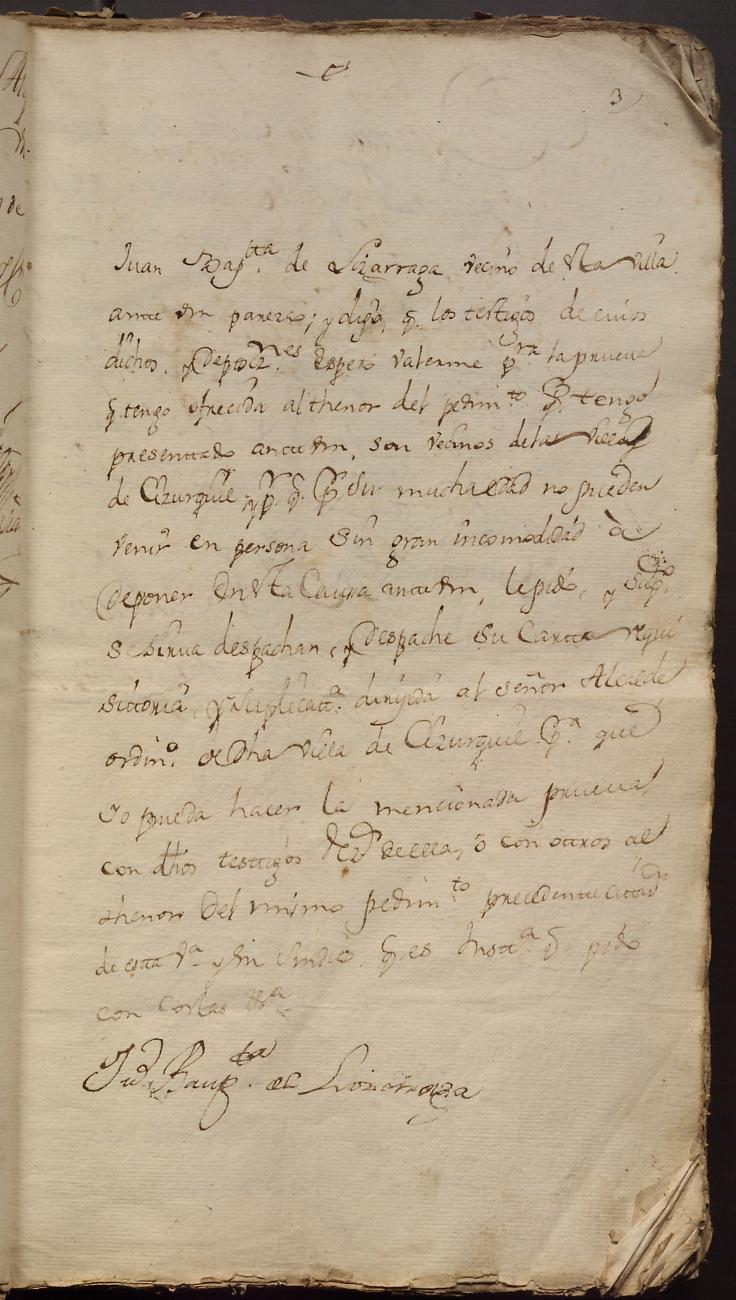 3
Juan Bap.tta de Lizarraga vecino de Vtta villa
antte Vm parezco; y digo, q. los testigos de cuios
dichos, y Deposiz.nes espero valerme p.ra la prueva
q. tengo ofrecida al thenor del pedim.to q. tengo
presenttado antte Vm, son vecinos de la villa
de Cizurquil, y p.r q. p.r su mucha edad no pueden
venir en persona sin gran incomodidad à
deponer en Vtta Causa antte Vm, le pido, y sup.co
se sirva despachar, y Despache su Cartta requi
sittoria, y suplicatt.a dirijida al señor Alcalde
ordin.o de Dha villa de Cizurquil p.a que
io pueda hacer la mencionada prueva
con dhos testtigos de ella, ò con ottros al
thenor Del mismo pedim.to precedente cittaz.on
de estta v.a y sin Sindico q. es Justt.a q. pido
con costas &.a
Ju.o Baup.ta de Lizarraga